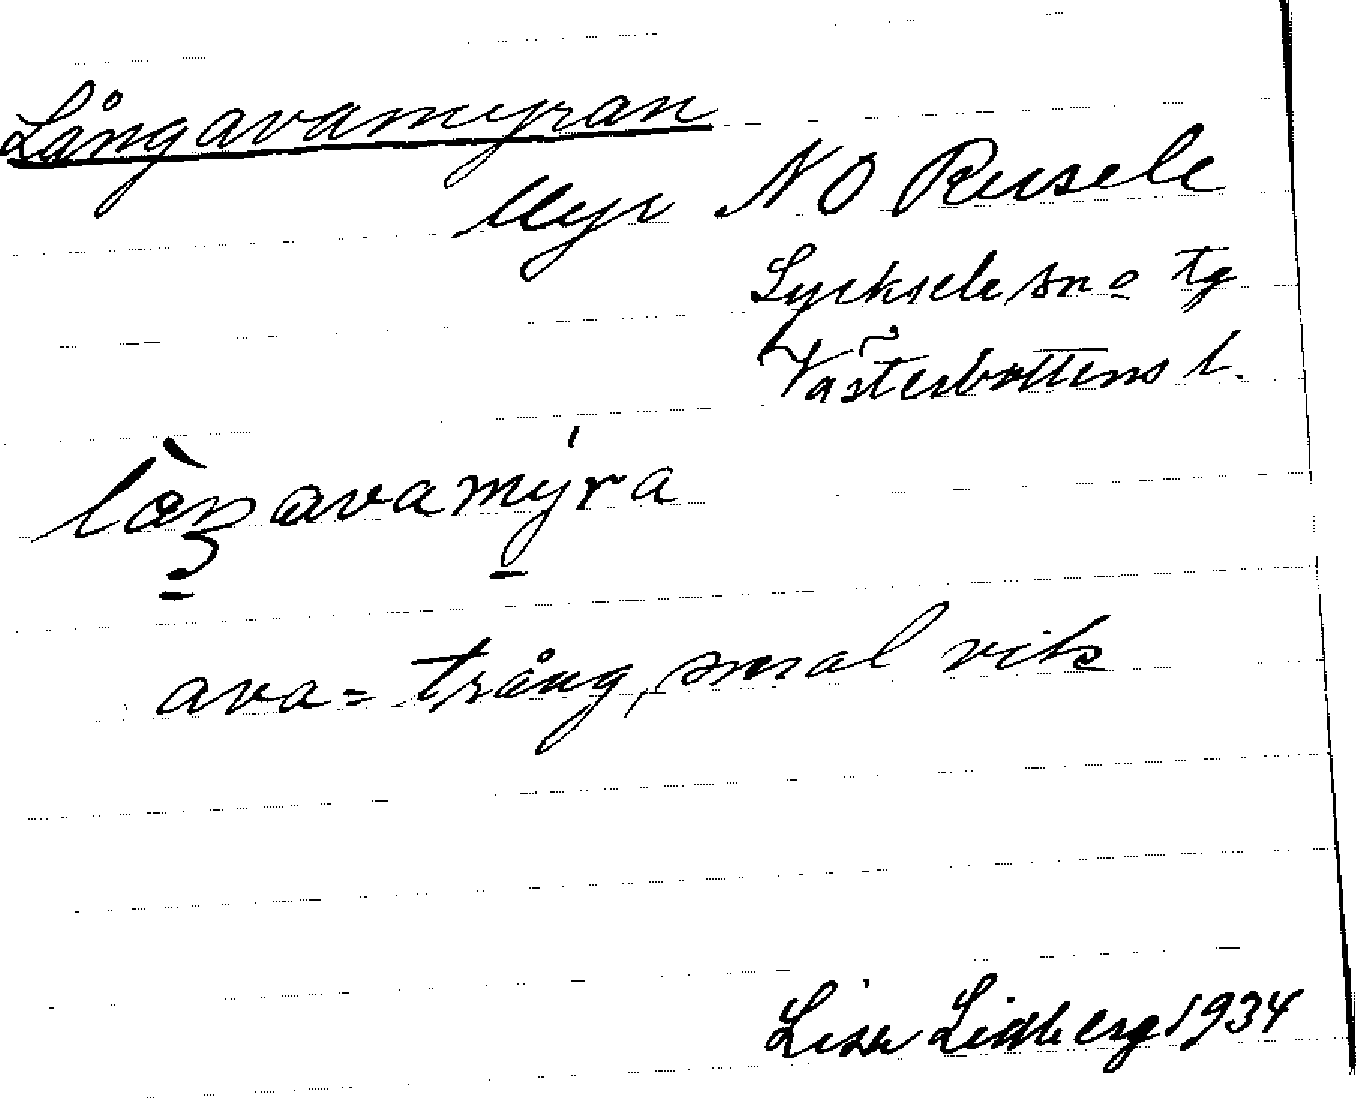 Långavamyran
Myr NO Rusele
Lycksele sn o tg
Västerbottens l.
làŋavamy̍ra
ava = trång, smal vik
Lisa Lidberg 1934